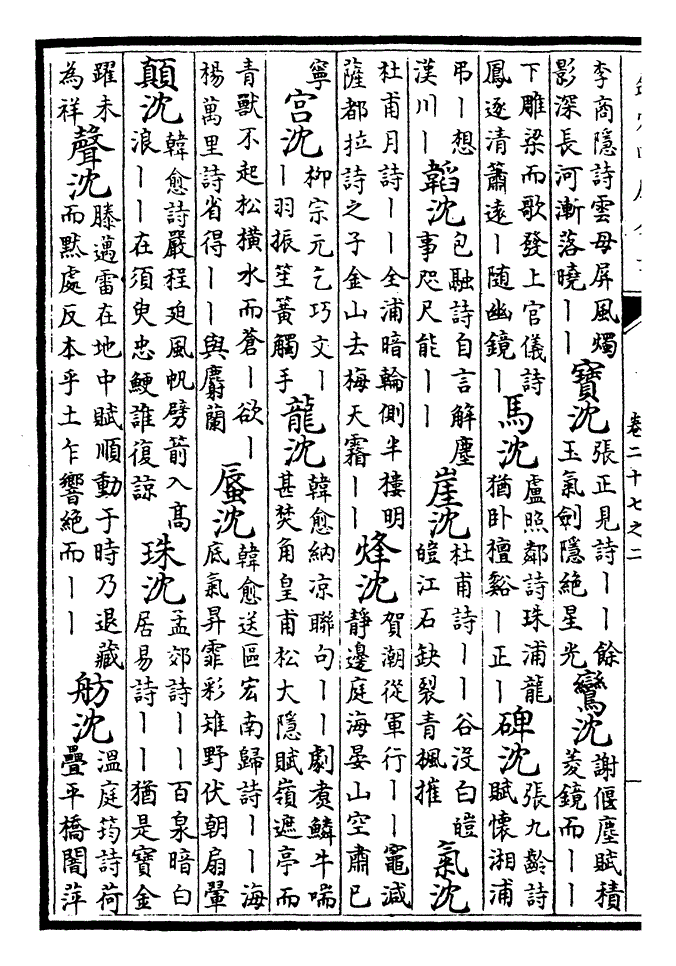 卷二十七之二
李商隱詩雲母屏風燭影深長河漸落曉丨丨 寶沈 張正見詩丨丨餘玉氣劍隱絕星光 鸞沈 謝偃塵賦積菱鏡而丨丨
下雕梁而歌發上官儀詩鳳逐清簫遠丨隨幽鏡丨 馬沈 盧照鄰詩珠浦龍猶卧檀谿丨正丨 碑沈 張九齡詩賦懷湘浦
弔丨想漢川丨 韜沈 包融詩自言解塵事咫尺能丨丨 崖沈 杜甫詩丨丨谷沒白皚皚江石缺裂青楓摧 氣沈
杜甫月詩丨丨全浦暗輪側半樓明薩都拉詩之子金山去梅天霧丨丨 烽沈 賀潮從軍行丨丨竈減靜邊庭海晏山空肅已
寧 宫沈 柳宗元乞巧文丨丨羽振笙簧觸手 龍沈 韓愈納凉聯句丨丨劇煑鱗牛喘甚焚角皇甫松大隱賦嶺遮亭而
青獸不起松橫水而蒼丨欲丨楊萬里詩省得丨丨與麝蘭 蜃沈 韓愈送區宏南歸詩丨丨海底氣昇霏彩雉野伏朝扇翬
顛沈 韓愈詩嚴程迫風帆劈箭入髙浪丨丨在須臾忠鯁誰復諒 珠沈 孟郊詩丨丨百泉暗白居易詩丨丨猶是寶金
躍未為祥 聲沈 滕邁雷在地中賦順動于時乃退藏而黙處反本乎土乍響絕而丨丨 舫沈 溫庭筠詩荷疊平橋闇萍